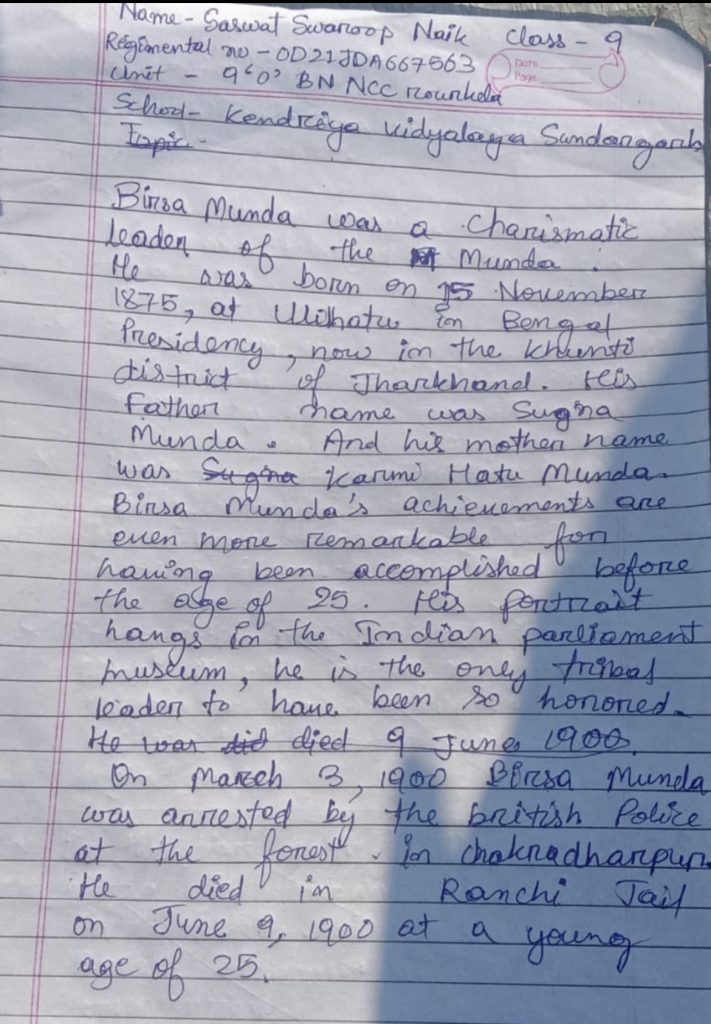 Name - Saswat Swaroop Naik Class - 9
Regimental no - OD21JDA667563
Date
Page
Unit - 9'0' BN NCC rourkela
School - Kendriya Vidyalaya Sundargarh
Topic -
Birsa Munda was a Charismatic
leader of the Munda.
He was born on 15 November
1875, at Ulihatu in Bengal
Presidency, now in the Khunti
district of Jharkhand. His
Father name was Sugna
Munda. And his mother name
was Sugna Karmi Hatu Munda.
Birsa Munda's achievements are
even more remarkable for
having been accomplished before
the age of 25. His portrait
hangs in the Indian parliament
museum, he is the only tribal
leader to have been so honored.
He was did died 9 June, 1900.
On March 3, 1900 Birsa Munda
was arrested by the british Police
at the forest in chakradharpur.
He died in Ranchi Jail
on June 9, 1900 at a young
age of 25.